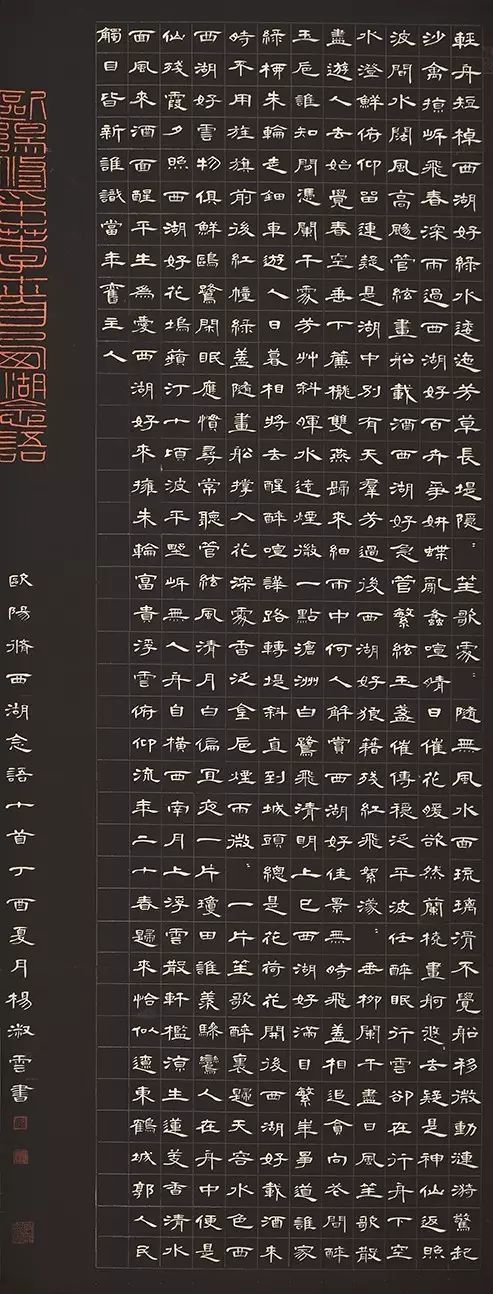 輕舟短棹西湖好綠水逶迤芳草長堤隱〻笙歌處〻隨無風水面琉璃滑不覺船移微動漣漪驚起
沙禽掠岸飛春深雨過西湖好百卉爭妍蝶亂蜂喧晴日催花暖欲然蘭橈畫舸悠去疑是神仙返照
波間水闊風高颺管絃畫船載酒西湖好急管繁絃玉盞催傳穩泛平波任醉眠行雲卻在行舟下空
水澄鮮俯仰留連疑是湖中別有天羣芳過後西湖好狼籍殘紅飛絮濛〻垂柳闌干盡日風笙歌散
盡遊人去始覺春空垂下簾櫳雙燕歸來細雨中何人解賞西湖好佳景無時飛蓋相追貪向花間醉
玉卮誰知閒憑闌干處芳艸斜暉水遠煙微一點滄洲白鷺飛清明上巳西湖好滿目繁華爭道誰家
綠柳朱輪走鈿車遊人日暮相將去醒醉喧譁路轉堤斜直到城頭總是花荷花開後西湖好載酒來
時不用旌旗前後紅幢綠蓋隨畫船撐入花深處香泛金卮煙雨微〻一片笙歌醉裏歸天容水色西
西湖好雲物俱鮮鷗鷺閒眠應慣尋常聽管絃風清月白偏宜夜一片瓊田誰羨驂鸞人在舟中便是
仙殘霞夕照西湖好花塢蘋汀十頃波平野岸無人舟自橫西南月上浮雲散軒檻涼生蓮芰香清水
面風來酒面醒平生為愛西湖好來擁朱輪富貴浮雲俯仰流年二十春歸來恰似遼東鶴城郭人民
觸目皆新誰識當年舊主人
歐陽脩采桑子十首西湖念語
歐陽脩西湖念語十首丁酉夏月楊淑雲書